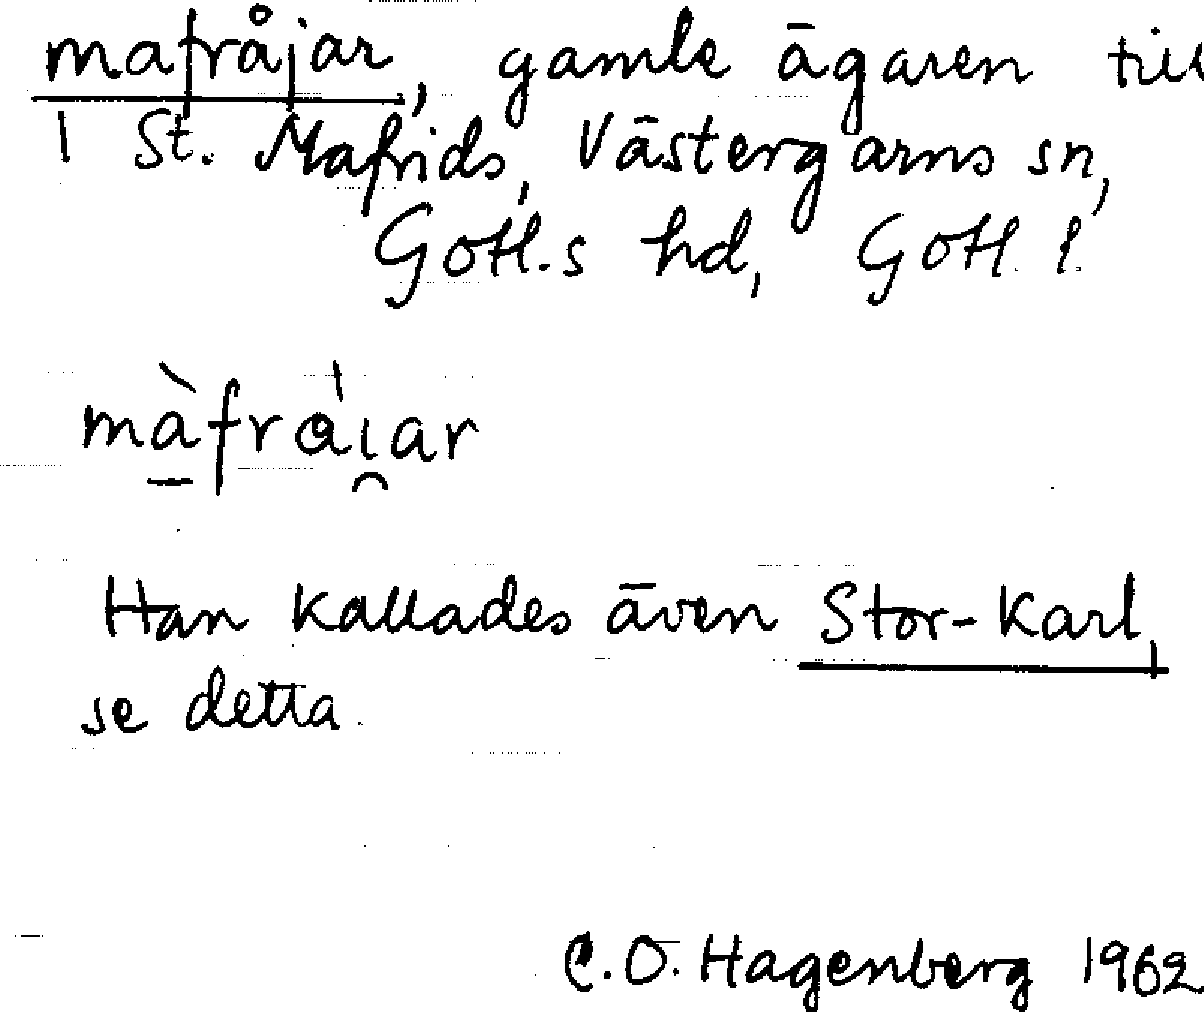 mafråjar, gamle ägaren till
1 St. Mafrids, Västergarns sn,
Gotl.s hd, Gotl. l.
màfrɑ̀ı̯ar
Han kallades även Stor-Karl,
se detta.
C.O. Hagenberg 1962